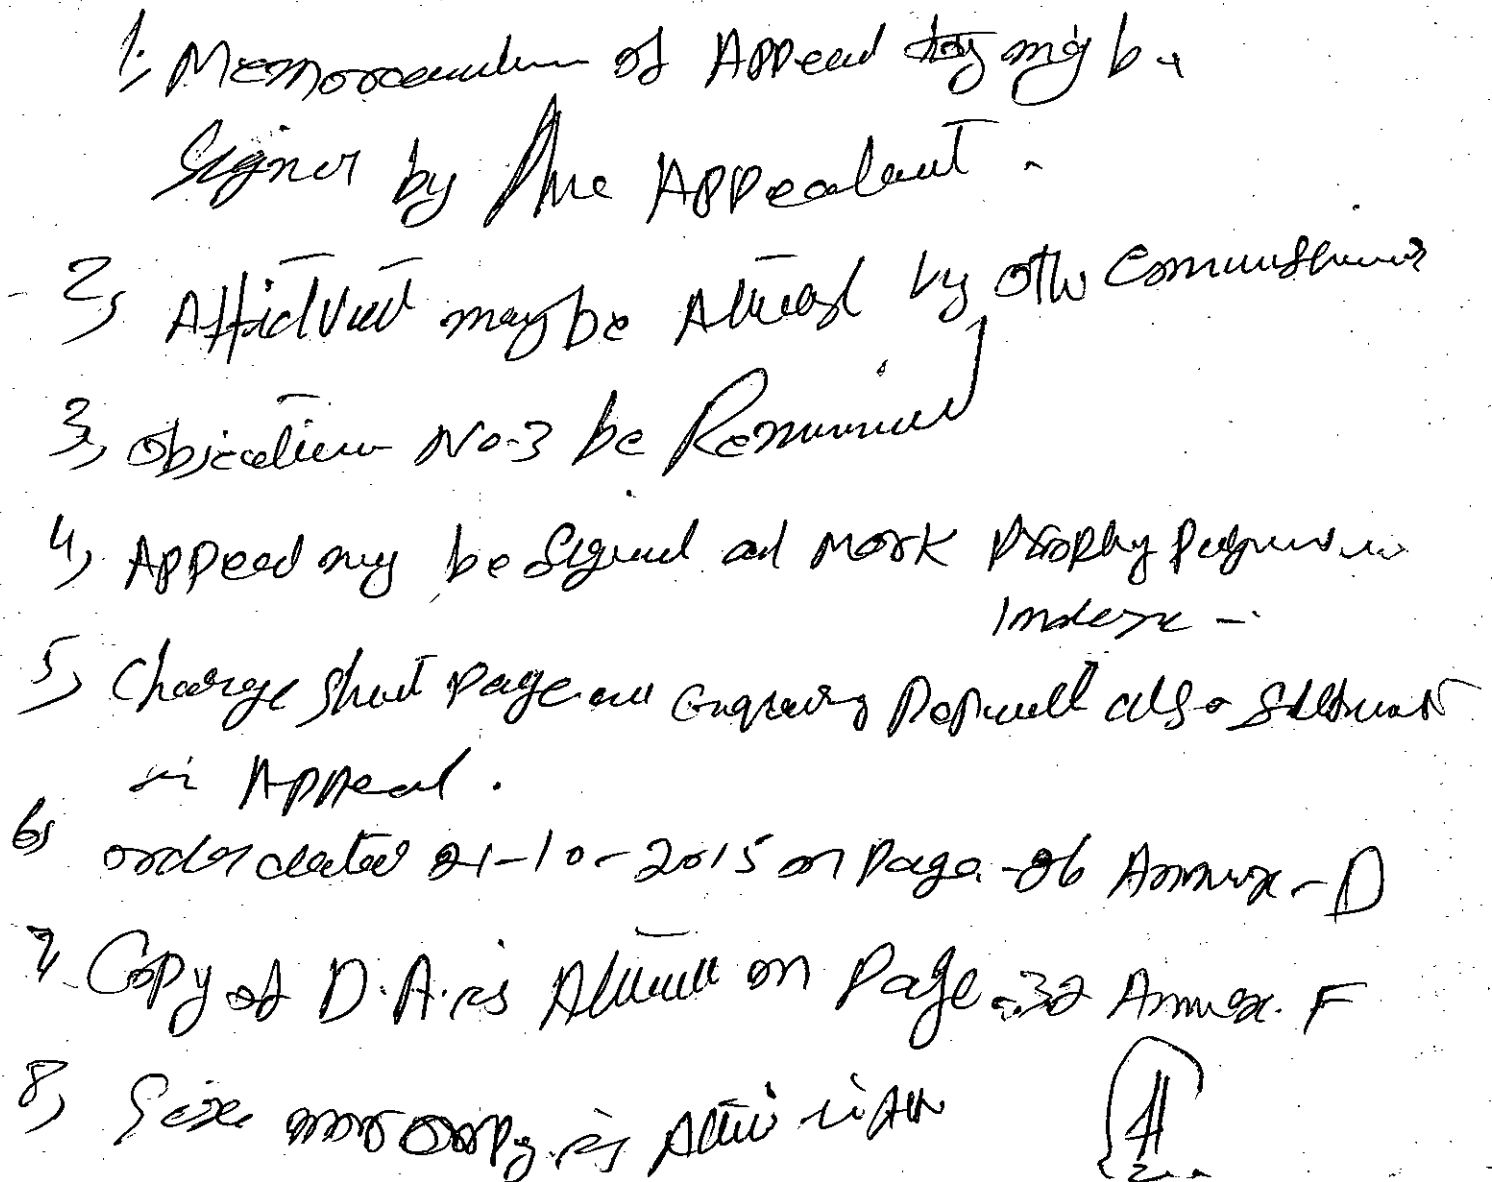 1. Memorandum of Appeal may be
Signed by the Appealant.
2, Affidvit may be Attesed by oth Commissioner
3, Objection No-3 be Removed
4, Appeal may be Signed and mork proply
Index -
5, Charge Sheet Page and also
in Appeal.
6, order dated 21-10-2015 on Page-26 Annex-D
7, Copy of D.A. is Attached on Page-32 Annex. F
8, Six more copy is